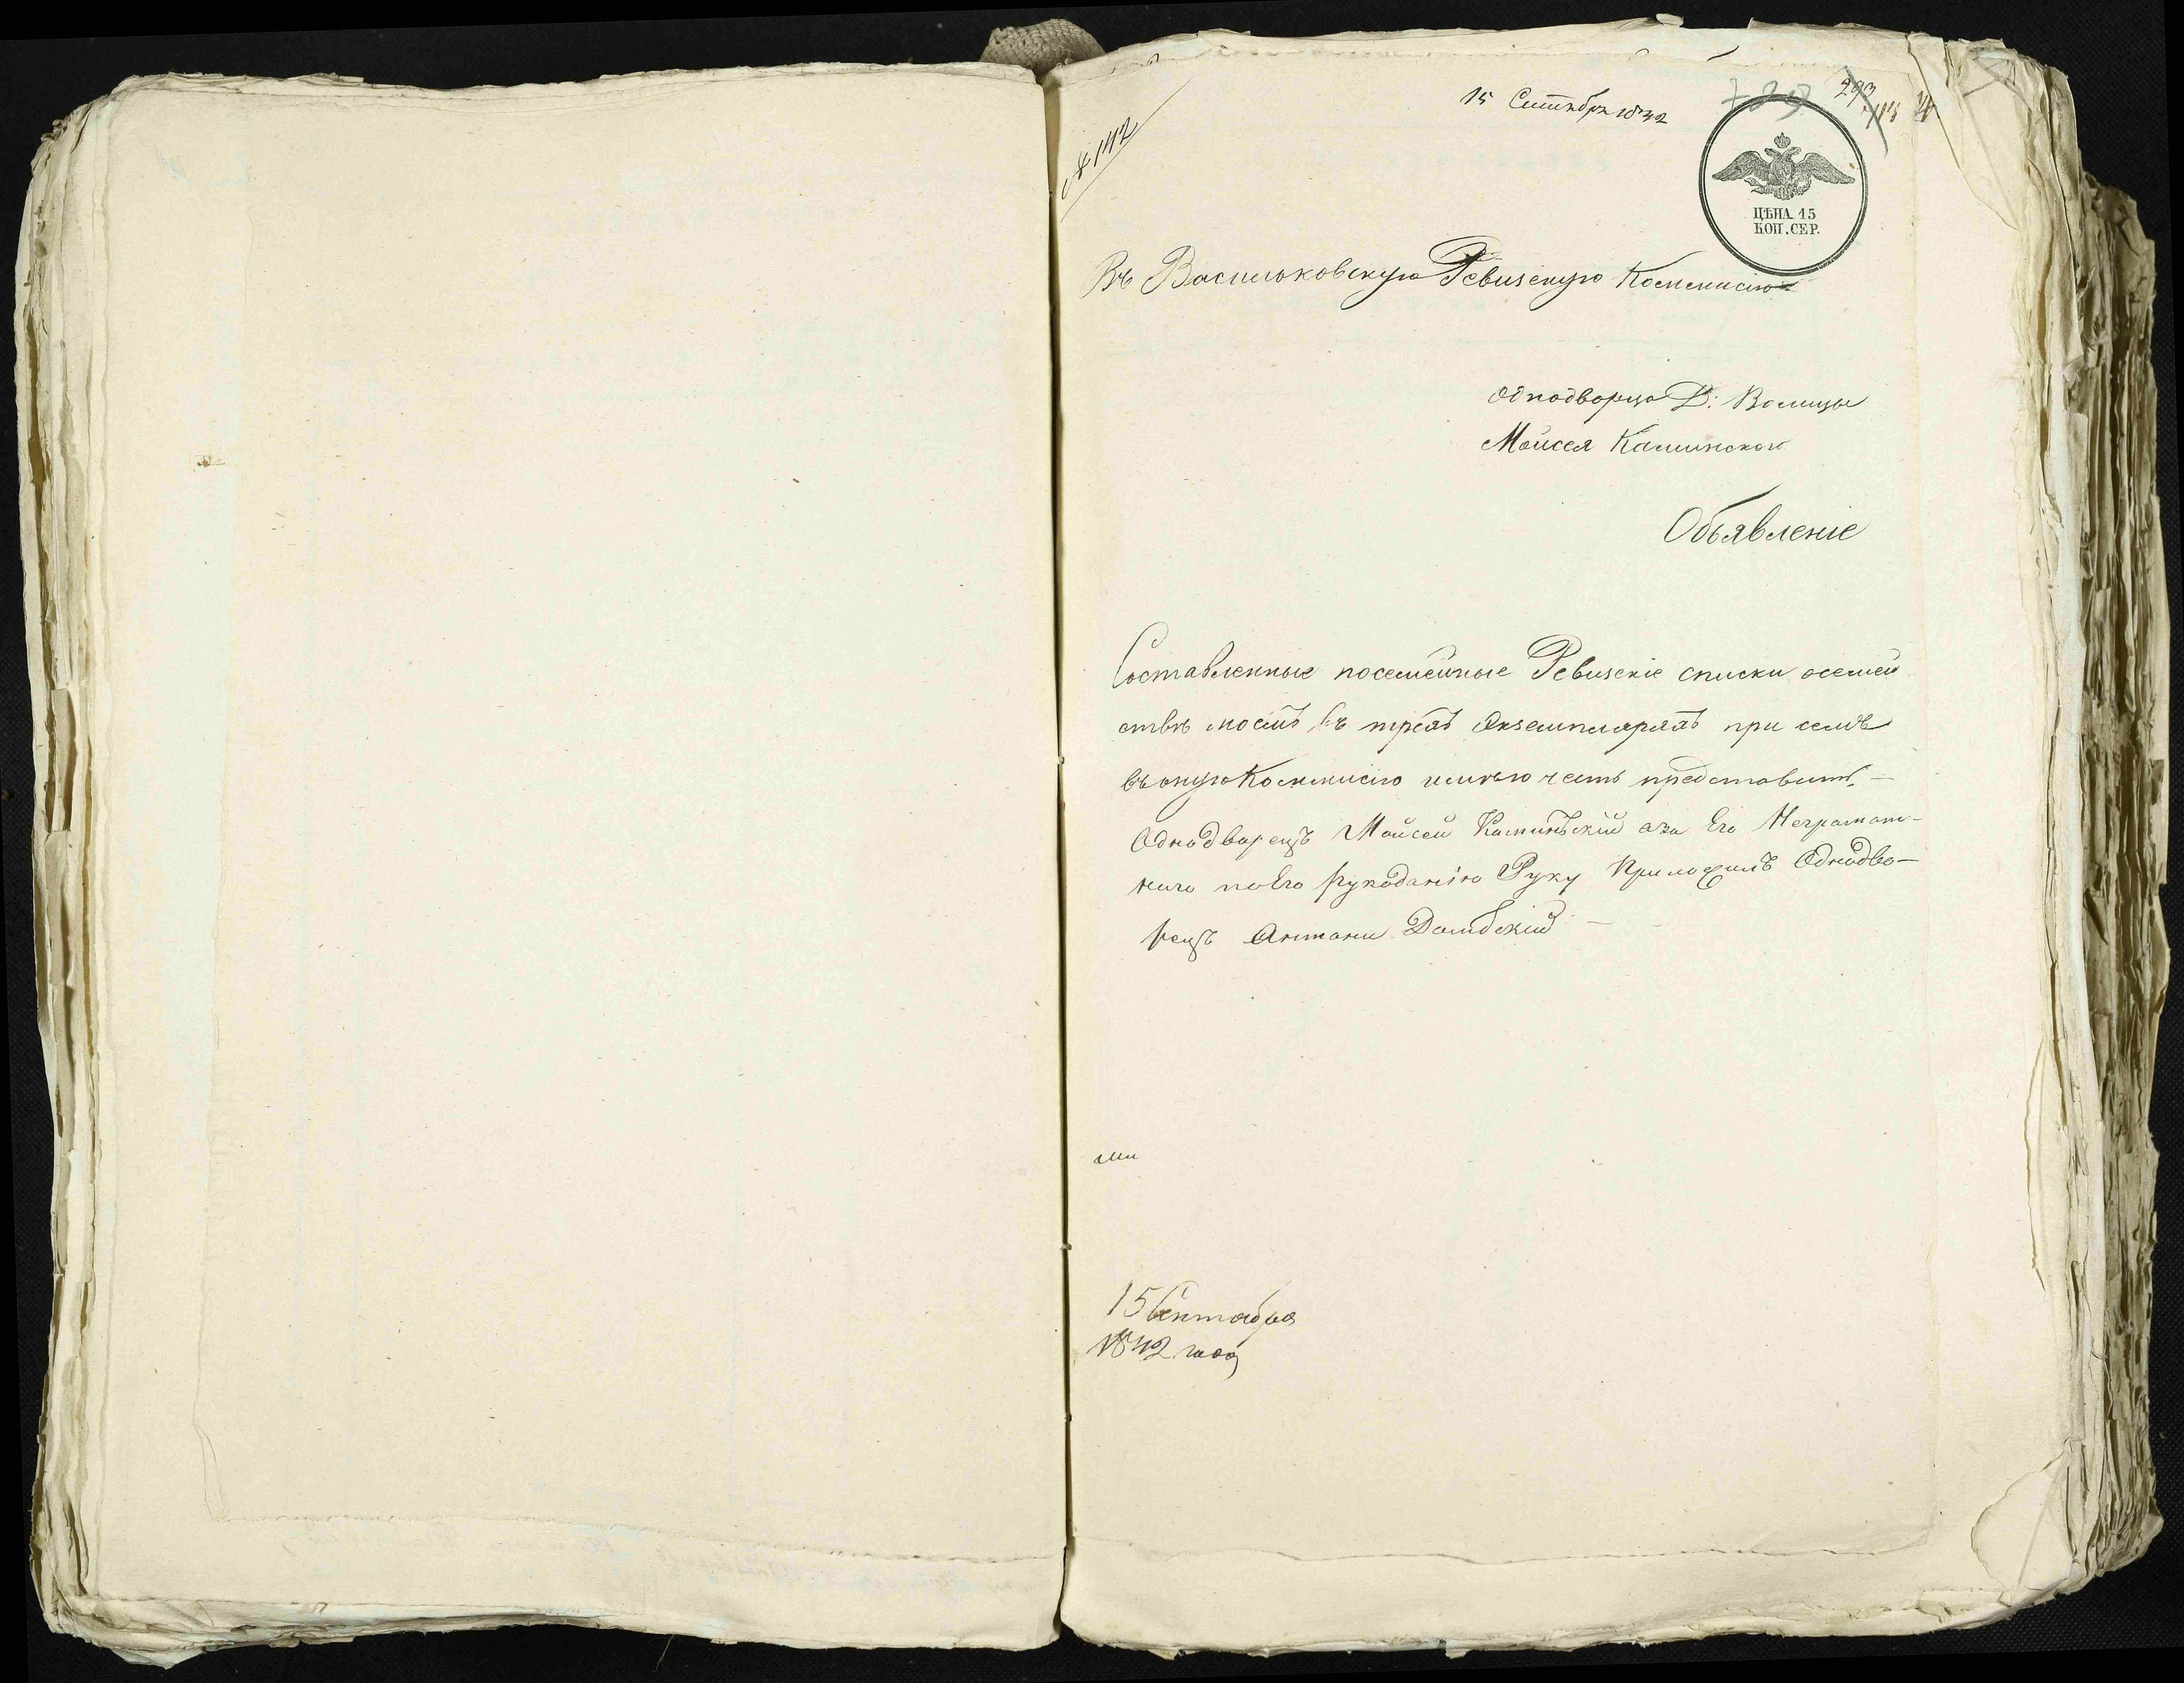 № 142
15 Сентября 1842
720
293
ЦѢНА 15
КОП. СЕР.
Въ Васильковскую Ревизскую Коммисію
Однодворца Д: Волицы
Мойсея Каминского
Обьявленіе
Составленные посемейные Ревизскіе списки осемей
ствѣ моемъ въ трехъ Экземплярахъ при семъ
въ оную Коммисію имѣю честь представить.—
Однодворецъ Мойсей Каминьскій аза Его Неграмот-
ного по Его рукоданію Руку Приложилъ Однодво-
рецъ Антони Домбскій —
ми
15 Сентября
1842 года